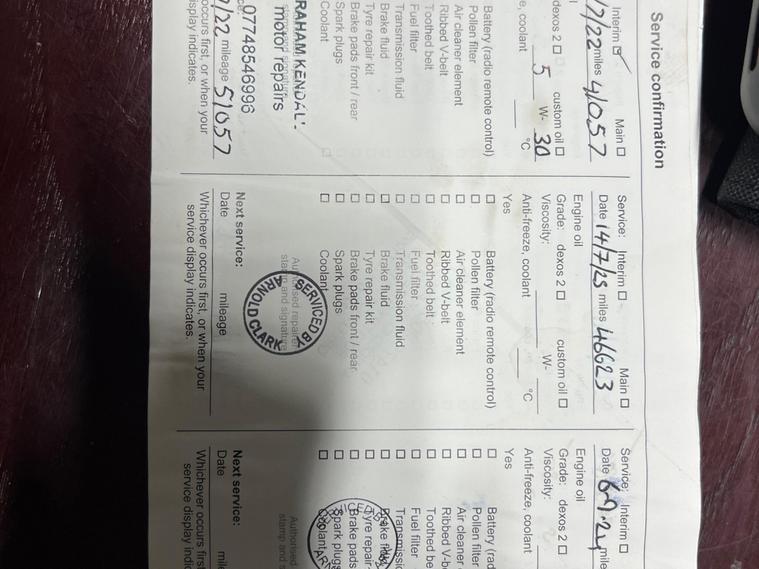 Service confirmation
Interim ☑ Main ☐
/22 miles 41057
dexos 2 ☐ custom oil ☐
5 W- 30
e, coolant °C
Battery (radio remote control)
Pollen filter
Air cleaner element
Ribbed V-belt
Toothed belt
Fuel filter
Transmission fluid
Brake fluid
Tyre repair kit
Brake pads front / rear
Spark plugs
Coolant ☐
RAHAM KENDAL
motor repairs
07748546996
/22 mileage 51057
occurs first, or when your
display indicates.
Service: Interim ☐ Main ☐
Date 14/7/23 miles 46623
Engine oil
Grade: dexos 2 ☐ custom oil ☐
Viscosity: W-
Anti-freeze, coolant °C
Yes
☐ Battery (radio remote control)
☐ Pollen filter
☐ Air cleaner element
☐ Ribbed V-belt
☐ Toothed belt
☐ Fuel filter
☐ Transmission fluid
☐ Brake fluid
☐ Tyre repair kit
☐ Brake pads front / rear
☐ Spark plugs
☐ Coolant
Authorised repairer
stamp and signature
SERVICED BY
ARNOLD CLARK
Next service:
Date mileage
Whichever occurs first, or when your
service display indicates.
Service: Interim ☐
Date
Engine oil
Grade: dexos 2 ☐
Viscosity:
Anti-freeze, coolant
Yes
☐ Battery (rad
☐ Pollen filter
☐ Air cleaner
☐ Ribbed V-b
☐ Toothed be
☐ Fuel filter
☐ Transmissio
☐ Brake fluid
☐ Tyre repair
☐ Brake pads
☐ Spark plugs
☐ Coolant
Authorised
stamp and s
Next service:
Date mile
Whichever occurs first
service display indic